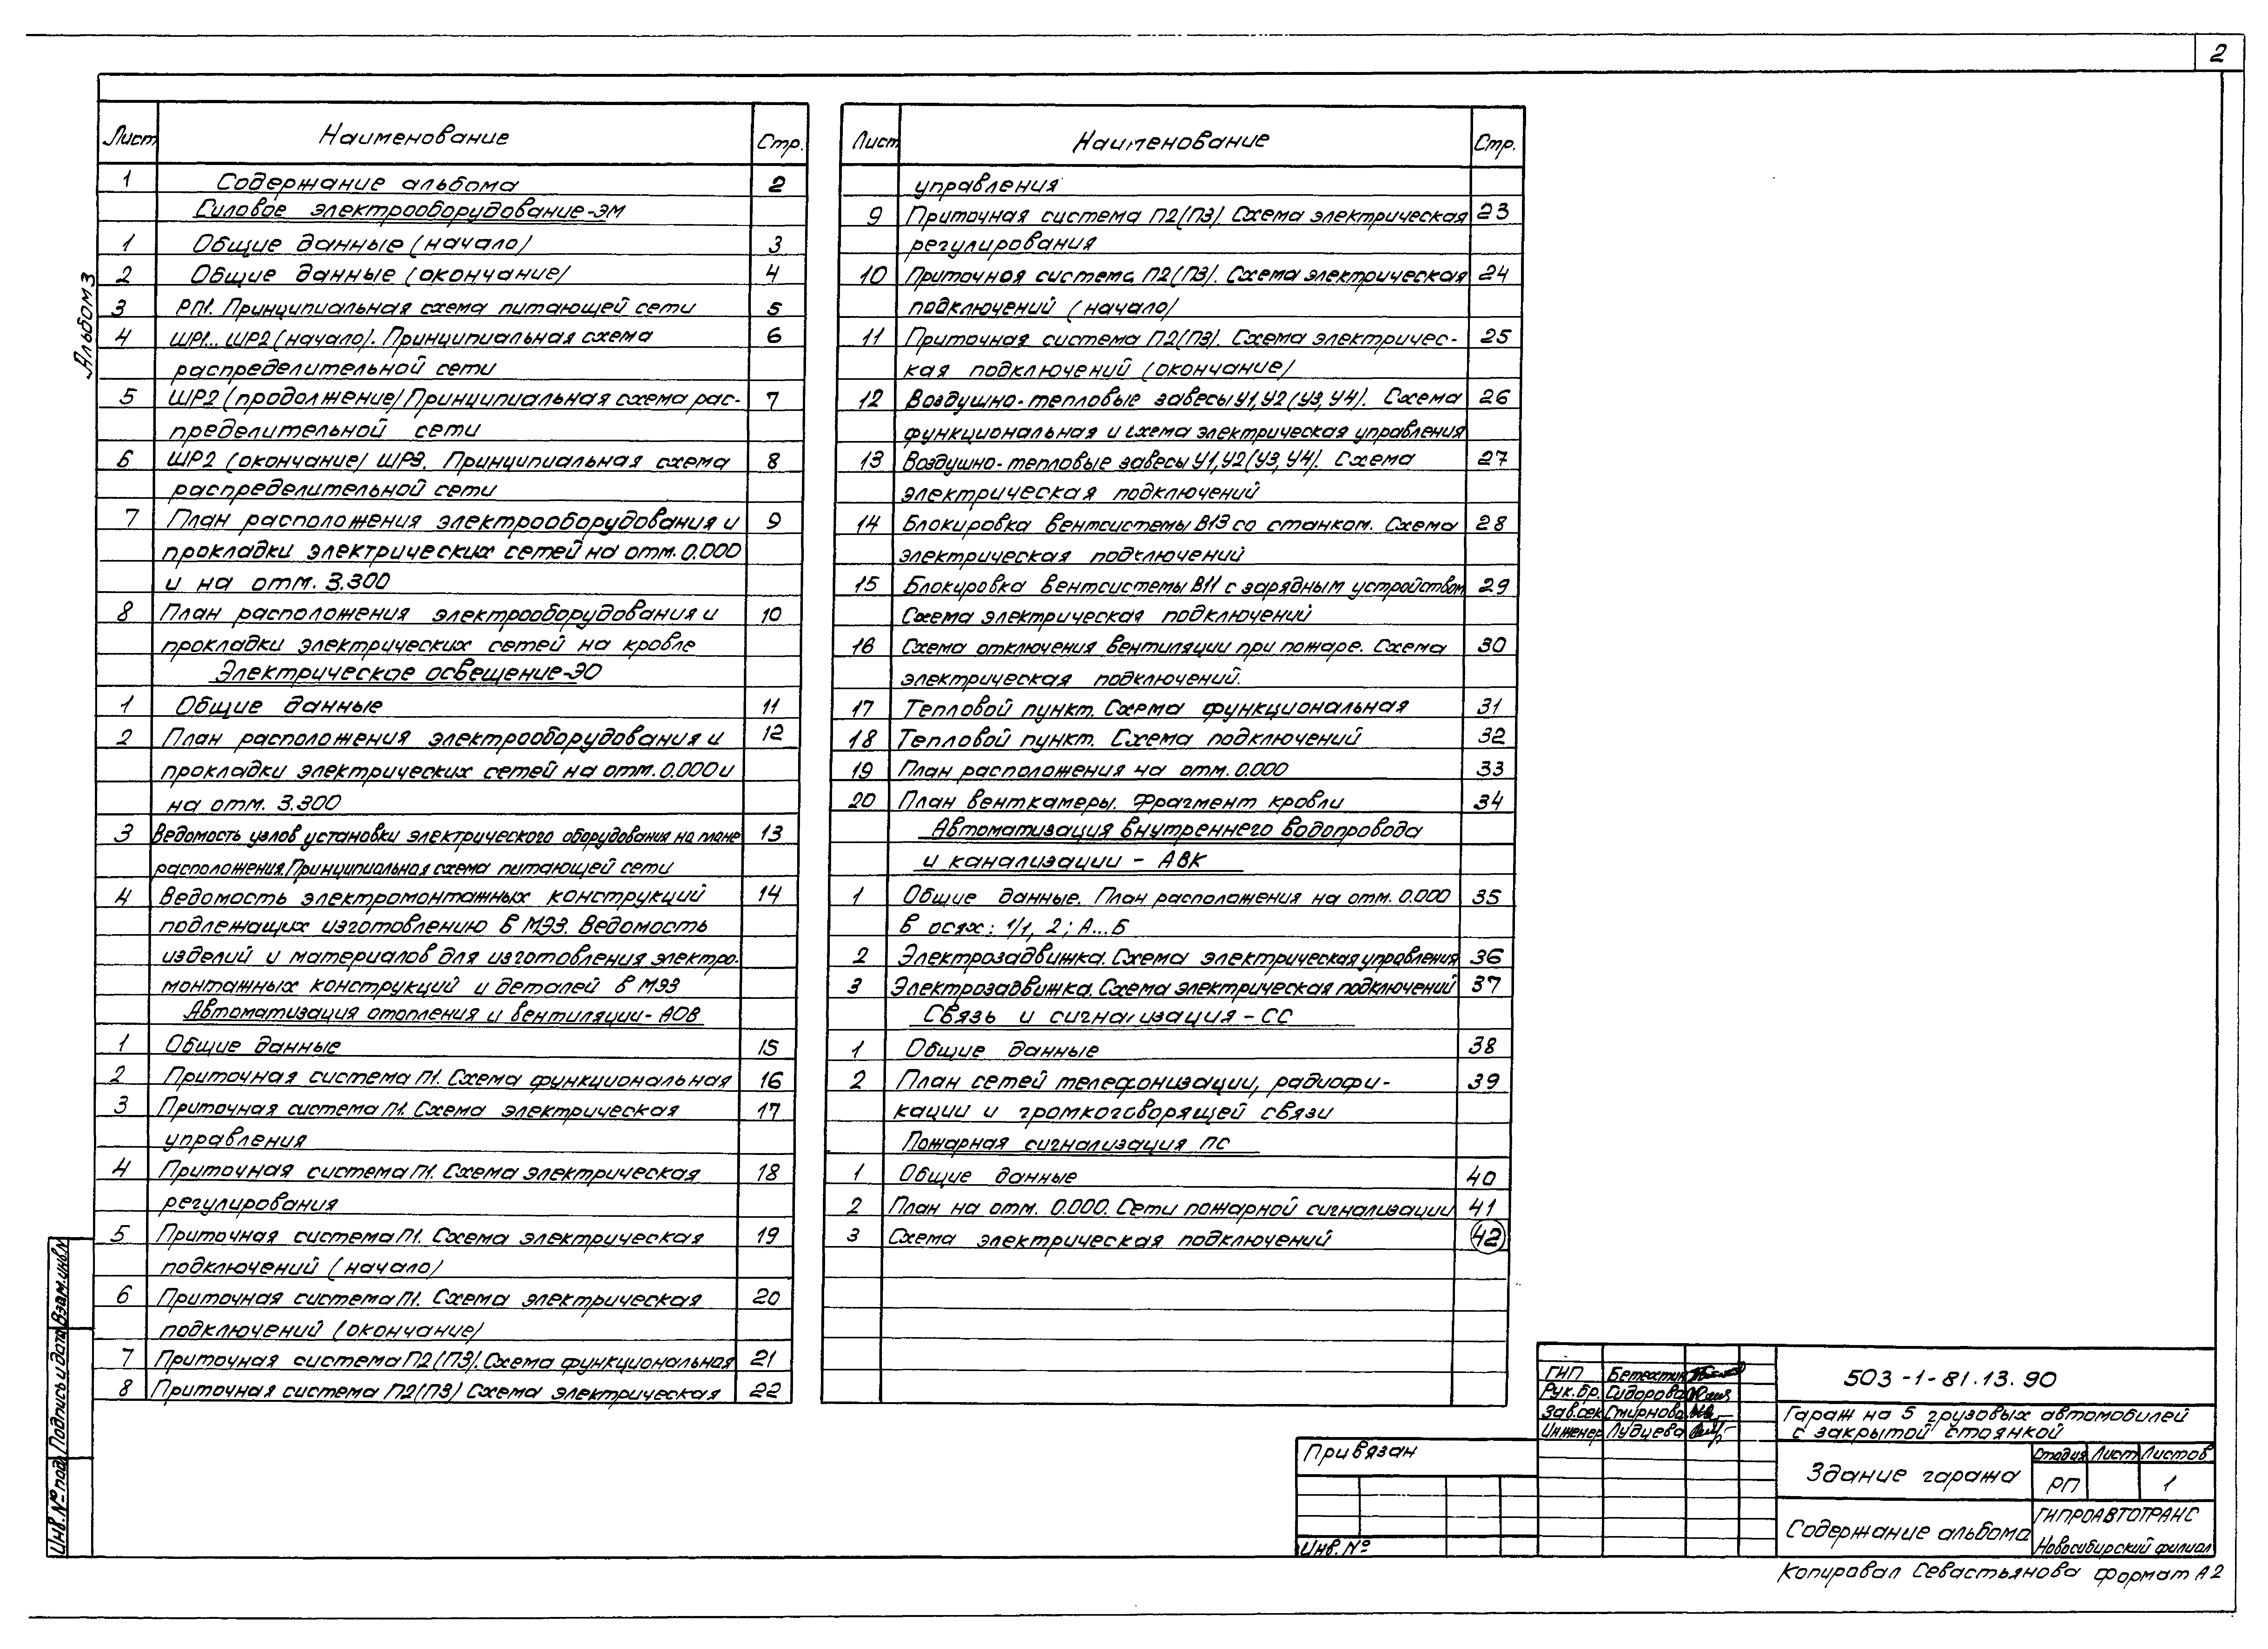 2
Альбом 3
Лист Наименование Стр.
1 Содержание альбома 2
Силовое электрооборудование-ЭМ
1 Общие данные (начало) 3
2 Общие данные (окончание) 4
3 РП1. Принципиальная схема питающей сети 5
4 ШР1... ШР2 (начало). Принципиальная схема 6
распределительной сети
5 ШР2 (продолжение) Принципиальная схема рас- 7
пределительной сети
6 ШР2 (окончание) ШР3. Принципиальная схема 8
распределительной сети
7 План расположения электрооборудования и 9
прокладки электрических сетей на отм. 0.000
и на отм. 3.300
8 План расположения электрооборудования и 10
прокладки электрических сетей на кровле
Электрическое освещение-ЭО
1 Общие данные 11
2 План расположения электрооборудования и 12
прокладки электрических сетей на отм. 0.000 и
на отм. 3.300
3 Ведомость узлов установки электрического оборудования на плане 13
расположения. Принципиальная схема питающей сети
4 Ведомость электромонтажных конструкций 14
подлежащих изготовлению в МЭЗ. Ведомость
изделий и материалов для изготовления электро-
монтажных конструкций и деталей в МЭЗ
Автоматизация отопления и вентиляции-АОВ
1 Общие данные 15
2 Приточная система П1. Схема функциональная 16
3 Приточная система П1. Схема электрическая 17
управления
4 Приточная система П1. Схема электрическая 18
регулирования
5 Приточная система П1. Схема электрическая 19
подключений (начало)
6 Приточная система П1. Схема электрическая 20
подключений (окончание)
7 Приточная система П2(П3). Схема функциональная 21
8 Приточная система П2(П3) Схема электрическая 22
Лист Наименование Стр.
управления
9 Приточная система П2(П3). Схема электрическая 23
регулирования
10 Приточная система П2(П3). Схема электрическая 24
подключений (начало)
11 Приточная система П2(П3). Схема электричес- 25
кая подключений (окончание)
12 Воздушно-тепловые завесы У1, У2 (У3, У4). Схема 26
функциональная и схема электрическая управления
13 Воздушно-тепловые завесы У1, У2 (У3, У4). Схема 27
электрическая подключений
14 Блокировка вентсистемы В13 со станком. Схема 28
электрическая подключений
15 Блокировка вентсистемы В11 с зарядным устройством 29
Схема электрическая подключений
16 Схема отключения вентиляции при пожаре. Схема 30
электрическая подключений.
17 Тепловой пункт. Схема функциональная 31
18 Тепловой пункт. Схема подключений 32
19 План расположения на отм. 0.000 33
20 План венткамеры. Фрагмент кровли 34
Автоматизация внутреннего водопровода
и канализации - АВК
1 Общие данные. План расположения на отм. 0.000 35
в осях: 1/1, 2; А...Б
2 Электрозадвижка. Схема электрическая управления 36
3 Электрозадвижка. Схема электрическая подключений 37
Связь и сигнализация - СС
1 Общие данные 38
2 План сетей телефонизации, радиофи- 39
кации и громкоговорящей связи
Пожарная сигнализация ПС
1 Общие данные 40
2 План на отм. 0.000. Сети пожарной сигнализации 41
3 Схема электрическая подключений 42
Взам.инв.№
Подпись и дата
Инв.№ под
Привязан
Инв. №
ГИП Бетехтин
Рук.бр. Сидорова
Зав.сек Смирнова
Инженер Лудцева
503-1-81.13.90
Гараж на 5 грузовых автомобилей
с закрытой стоянкой
Здание гаража
Стадия Лист Листов
РП 1
Содержание альбома
ГИПРОАВТОТРАНС
Новосибирский филиал
Копировал Севастьянова формат А2